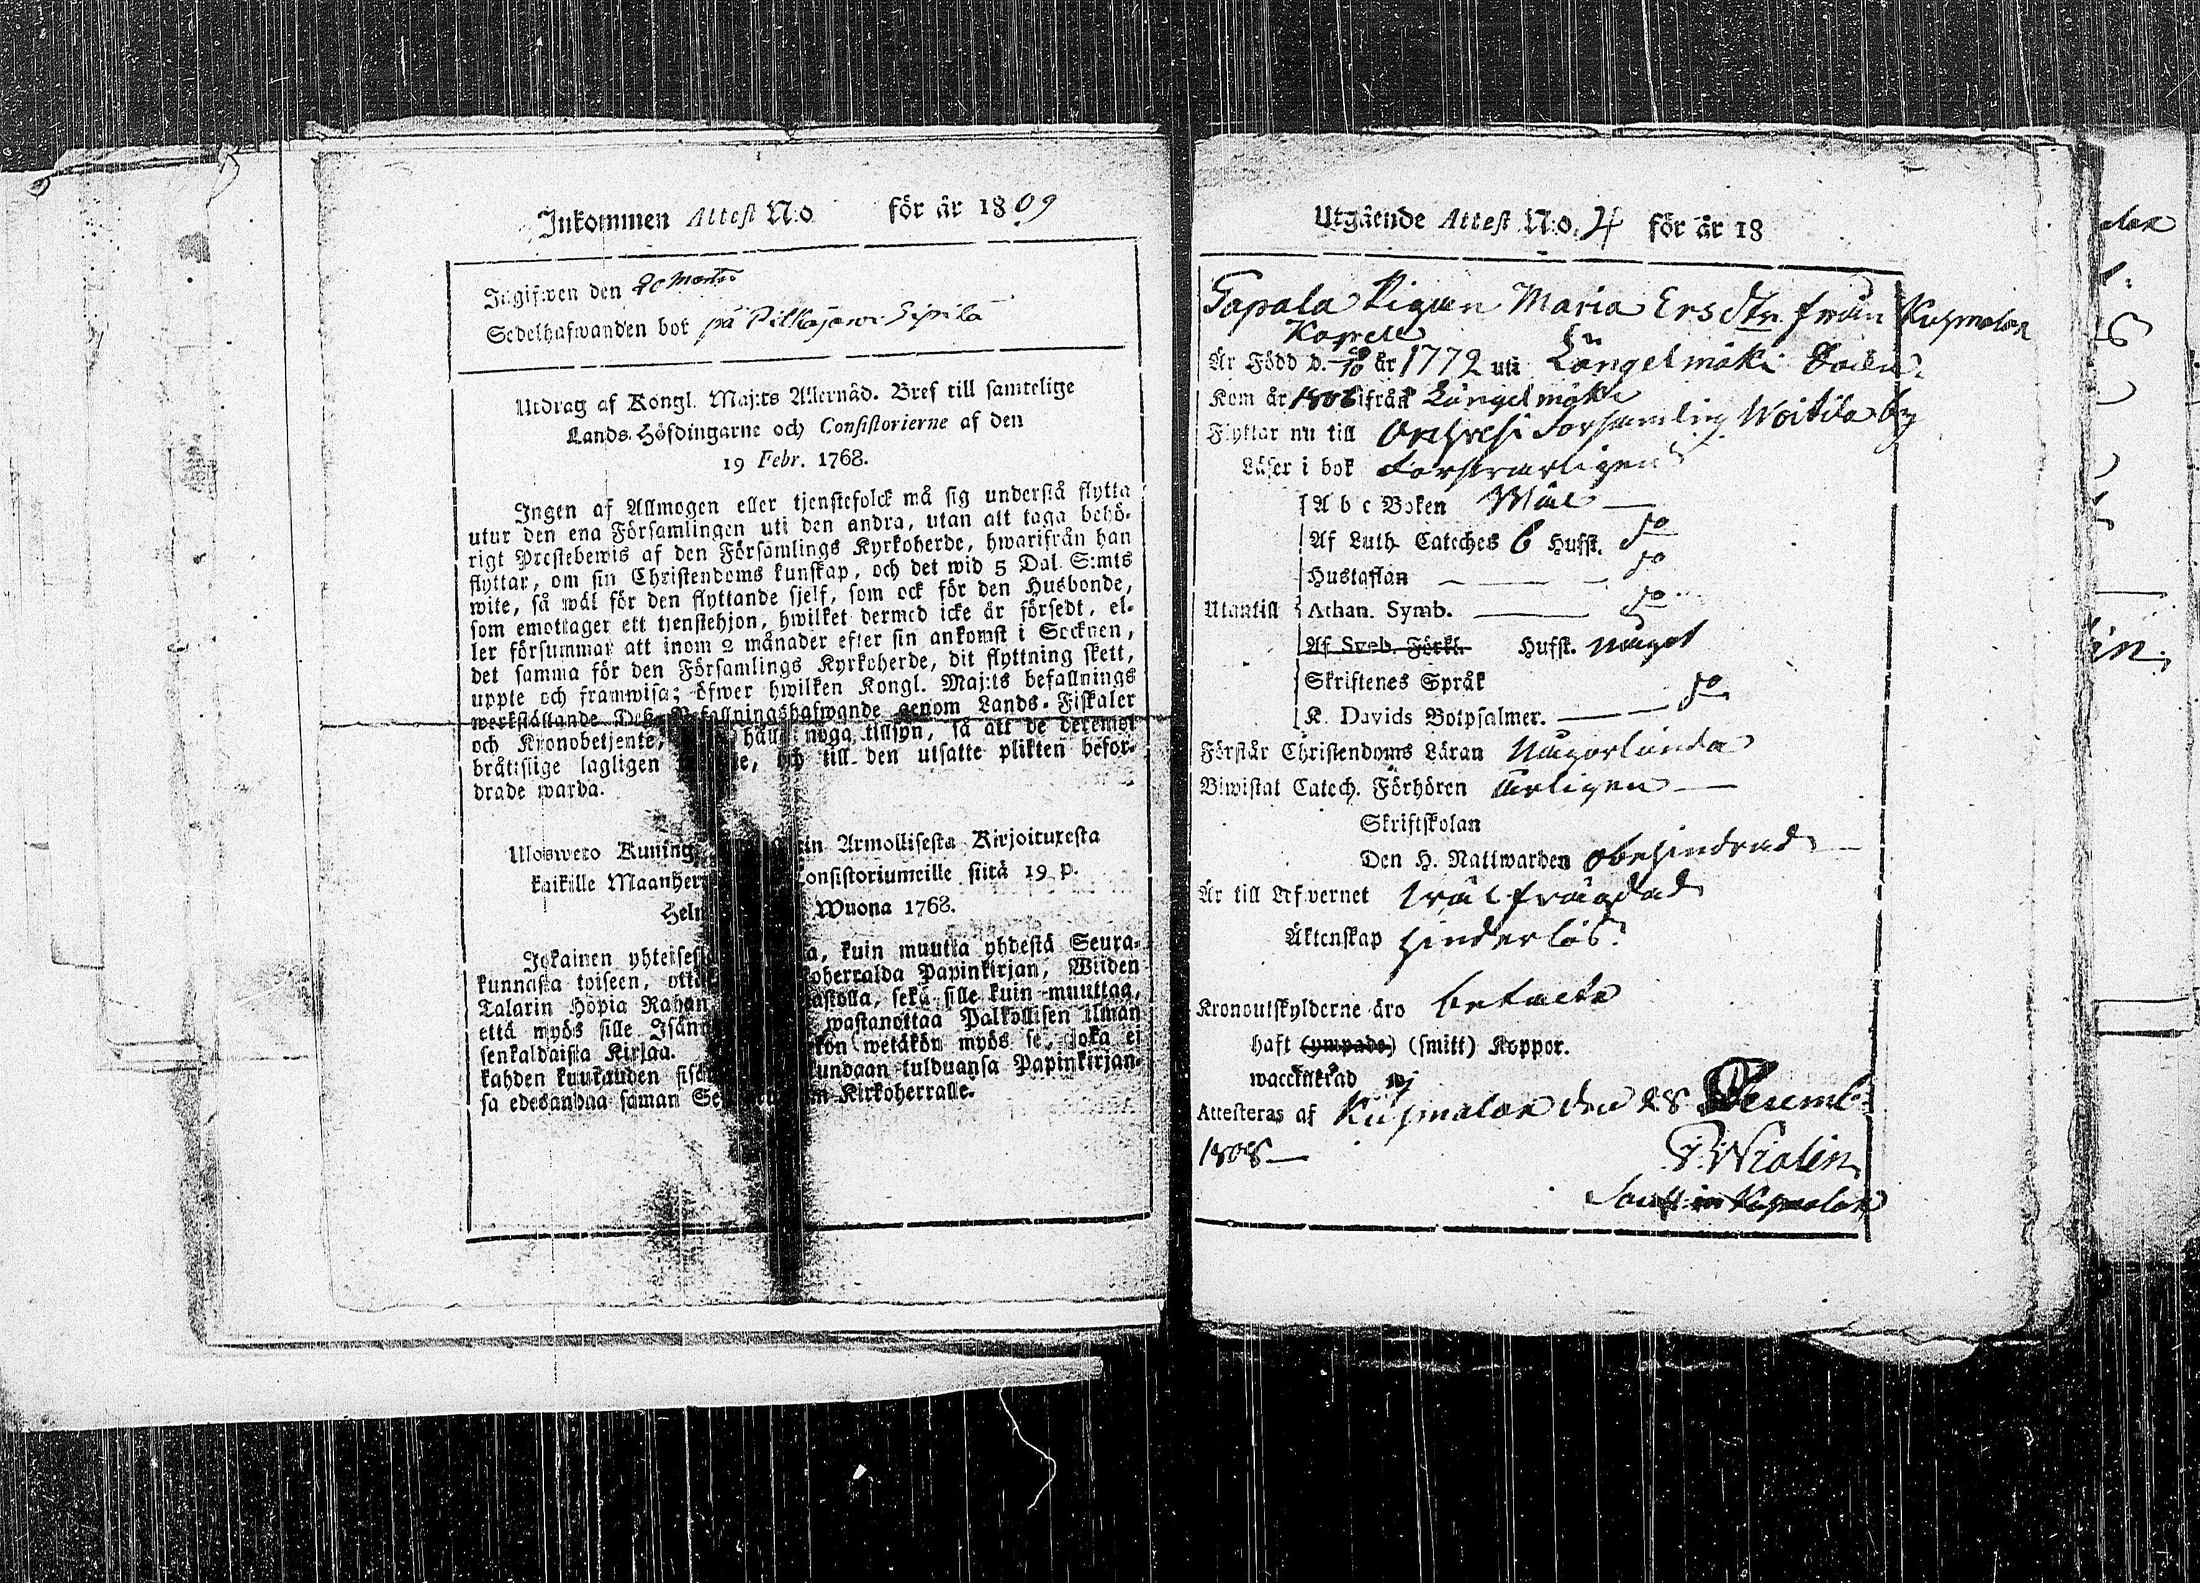 Inkommen Attest N:o för år 1809
Ingifwen den 20 Martii
Sedelhafwanden bor på Pitkäjärvi Sipilä
Utdrag af Kongl. Maj:ts Allernåd. Bref till samtelige
Lands-Höfdingarne och Consistorierne af den
19 Febr. 1768.
Ingen af Allmogen eller tjenstefolck må sig understå flytta
utur den ena Församlingen uti den andra, utan att taga behö-
rigt Prestebewis af den Församlings Kyrkoherde, hwarifrån han
flyttar, om sin Christendoms kunskap, och det wid 5 Dal. S:mts
wite, så wäl för den flyttande sjelf, som ock för den Husbonde,
som emottager ett tjenstehjon, hwilket dermed icke är försedt, el-
ler försummar att inom 2 månader efter sin ankomst i Socknen,
det samma för den Församlings Kyrkoherde, dit flyttning skett,
uppte och framwisa; öfwer hwilken Kongl. Maj:ts befallnings
werkställande Dess Befallningshafwande genom Lands-Fiskaler
och Kronobetjente, håll noga tillsyn, så att de deremot
bråttslige lagligen och till den utsatte plikten befor-
drade warda.
Uloswero Kuning in Armollisesta Kirjoituxesta
kaikille Maanher onsistoriumeille siitä 19 p.
Helm Wuona 1768.
Jokainen yhteises a, kuin muutta yhdestä Seura-
kunnasta toiseen, otta koherralda Papinkirjan, Wiiden
Talarin Hopia Rahan astolla, sekä sille kuin muuttaa,
että myös sille Isänn wastanottaa Palkollisen ilman
senkaldaista Kirjaa. kön wetäkön myös se, joka ei
kahden kuukauden sisä kundaan tulduansa Papinkirjan-
sa edesanna saman Se n Kirkoherralle.
Utgående Attest N:o 4 för år 18
Tapala Pigan Maria Ersdtr från Kuhmalax
Kapell
Är Född d. 10 år 1772 uti Längelmäki Socken
Kom år 1806 ifrån Längelmäki
Flyttar nu till Orihvesi Församling Woitila by
Läser i bok försvarligen
A b c Boken Wäl
Af Luth. Cateches 6 Hufst. do
Hustaflan do
Utantill Athan. Symb. do
Af Sveb. Förkl. Hufst. något
Skriftenes Språk
K. Davids Botpsalmer. do
Förstår Christendoms Läran någorlunda
Biwistat Catech. Förhören årligen
Skriftskolan
Den H. Nattwarden obehindrad
Är till Lefvernet wälfrägdad
Äktenskap hinderlös
Kronoutskylderne äro betalte
haft (ympade) (smitt) Koppor.
waccinerad ej
Attesteras af Kuhmalax den 28 Decemb.
1808
Wialen